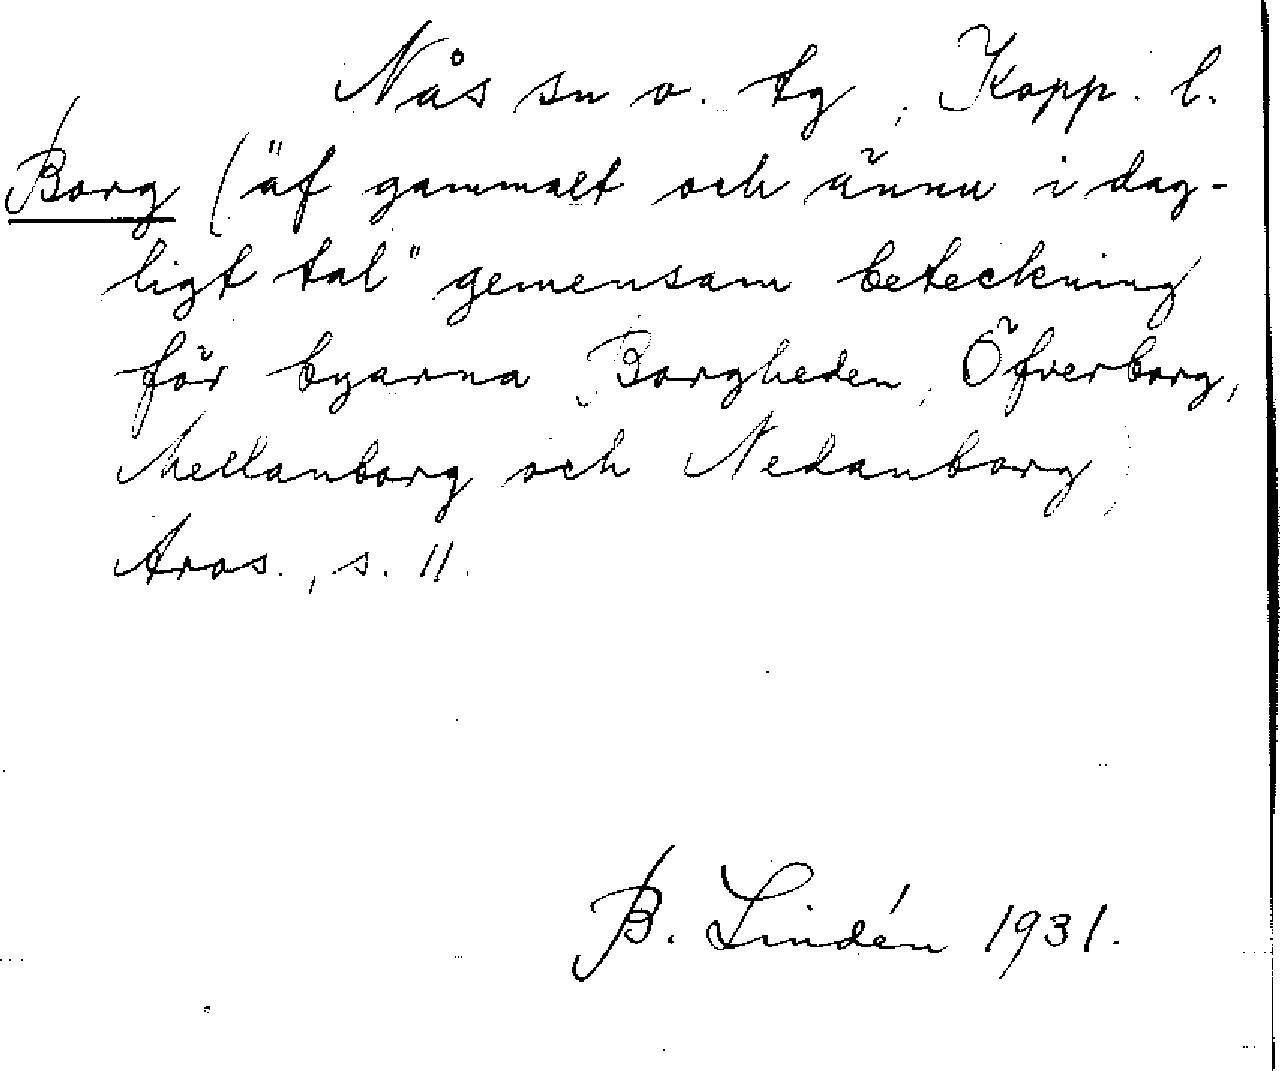 Nås sn o. tg, Kopp. l.
Borg ("af gammalt och ännu i dag-
ligt tal" gemensam beteckning
för byarna Borgheden, Öfverborg,
Mellanborg och Nedanborg)
Aros., s. 11.
B. Lindén 1931.